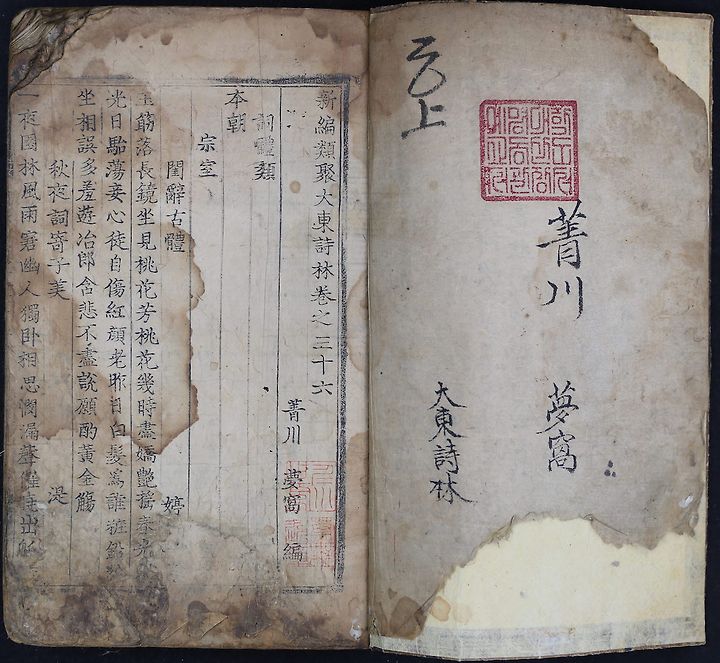 上
菁川 夢窩
大東詩林
新編類聚大東詩林卷之三十六
菁川 夢窩 編
詞體類
本朝
宗室
閨辭古體 婷
玉筯落長鏡坐見桃花芳桃花幾時盡嬌艶搖春光
光日駘蕩妾心徒自傷紅顔老昨宵白髮爲誰粧鉛
坐相誤多羞遊冶郎含悲不盡說願酌黃金觴
秋夜詞寄子美 湜
一夜園林風雨寒幽人獨卧相思惱漏聲催 出